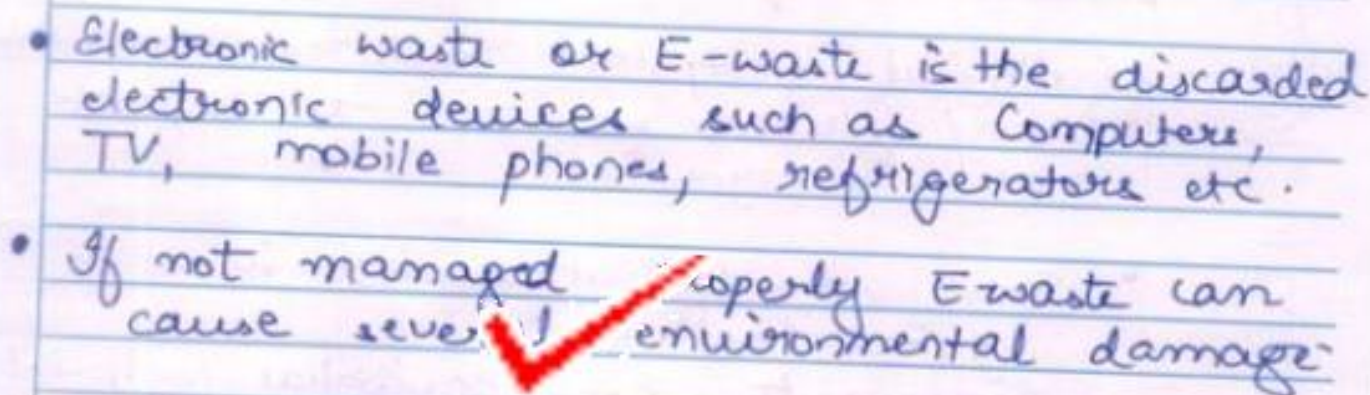 • Electronic waste or E-waste is the discarded
electronic devices such as Computers,
TV, mobile phones, refrigerators etc.
• If not managed E-waste can
cause environmental damage